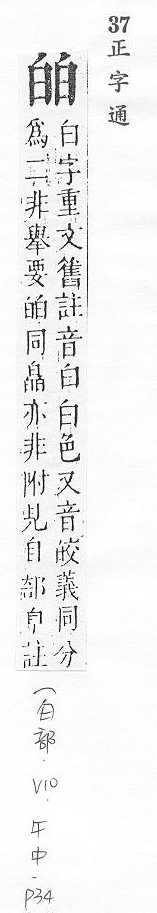 37
正字通
皕
白字重文舊註音白白色又音皎義同分
爲二非舉要皕同皛亦非附見白部皃註
(白部.V10.午中-P34